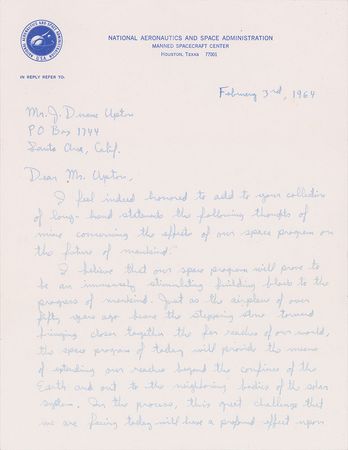 NATIONAL AERONAUTICS AND SPACE ADMINISTRATION
MANNED SPACECRAFT CENTER
HOUSTON, TEXAS 77001
IN REPLY REFER TO:
February 3rd, 1964
Mr. J. Duane Upton
P O Box 1744
Santa Ana, Calif.
Dear Mr. Upton,
I feel indeed honored to add to your collection
of long-hand statements the following thoughts of
mine concerning the effects of our space program on
the future of mankind."
I believe that our space program will prove to
be an immensely stimulating building block to the
progress of mankind. Just as the airplane of over
fifty years ago became the stepping stone toward
bringing closer together the far reaches of our world,
the space program of today will provide the means
of extending our reaches beyond the confines of the
Earth and out to the neighboring bodies of the solar
system. In the process, this great challenge that
we are facing today will have a profound effect upon